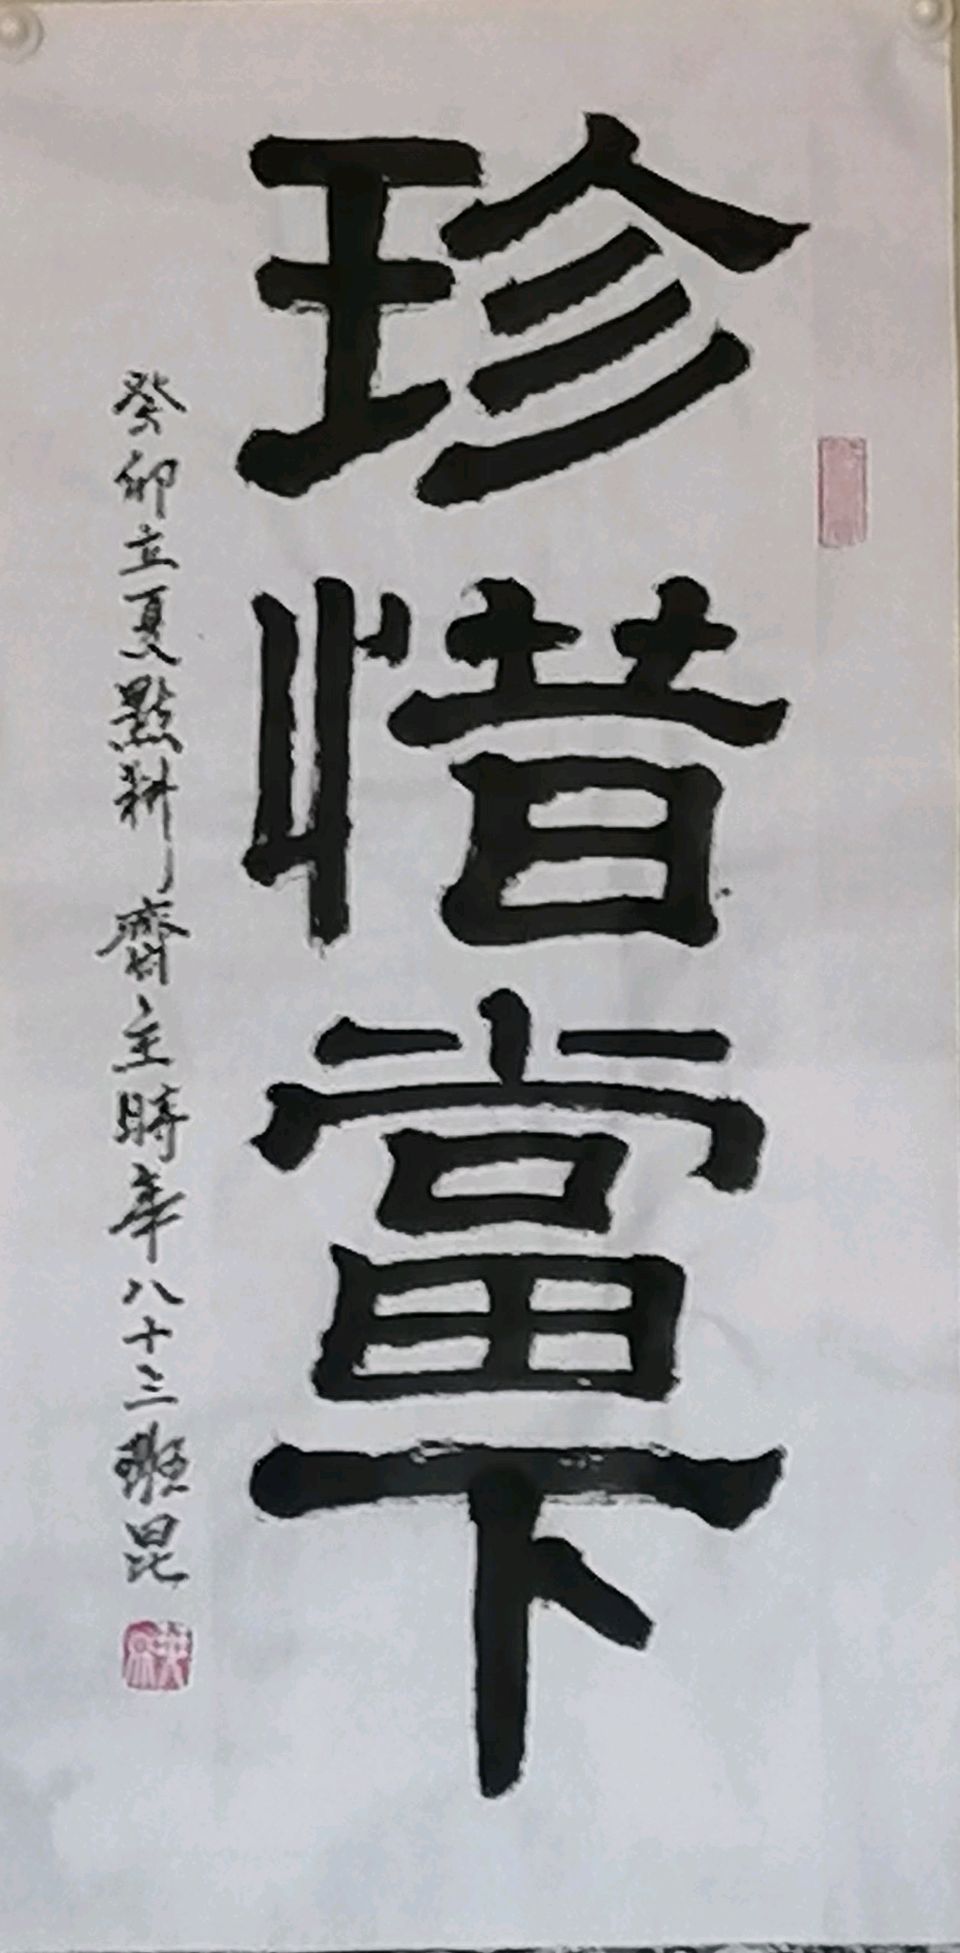 珍惜當下
癸卯立夏點耕齋主時年八十三
昆